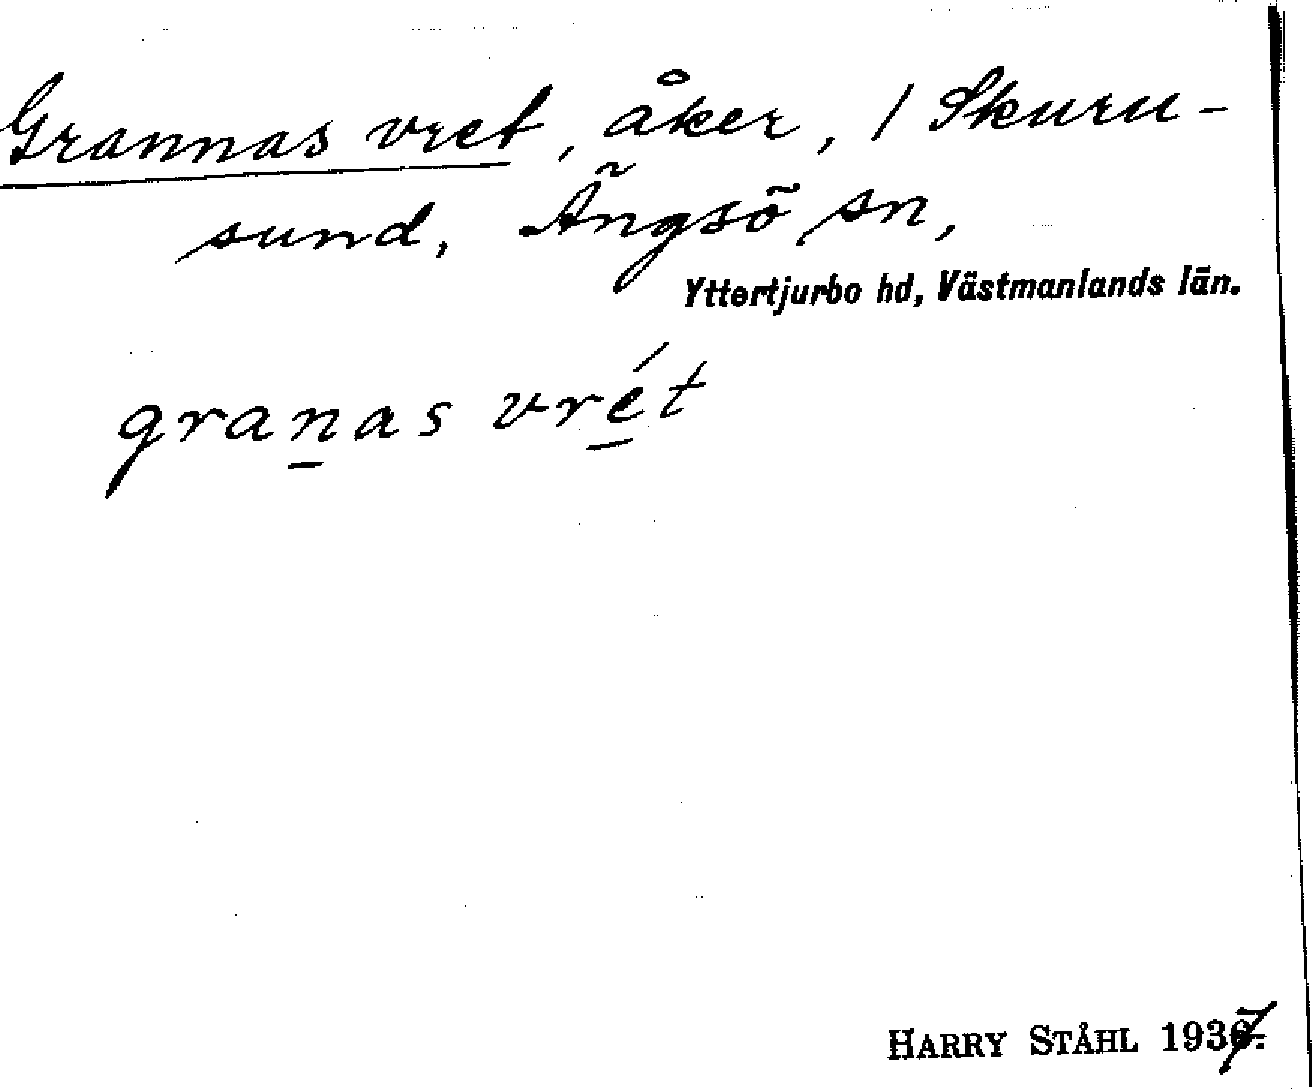 Grannas vret, åker, / Skuru-
sund, Ängsö sn,
Yttertjurbo hd, Västmanlands län.
granas vrét
HARRY STÅHL 1937.